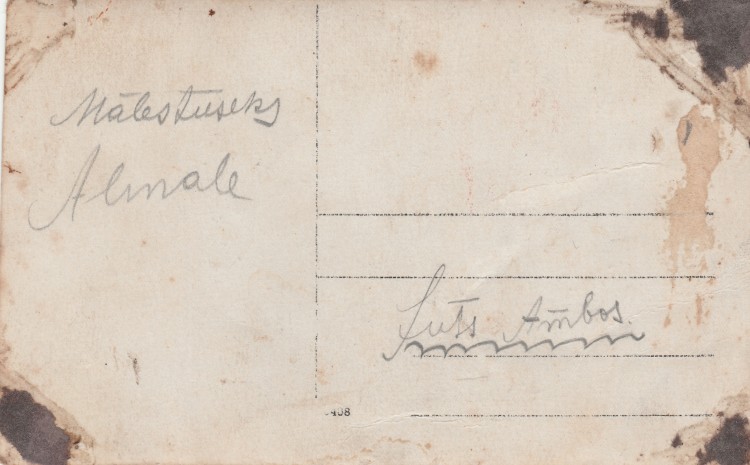 Mälestuseks
Almale
Ambos.
408